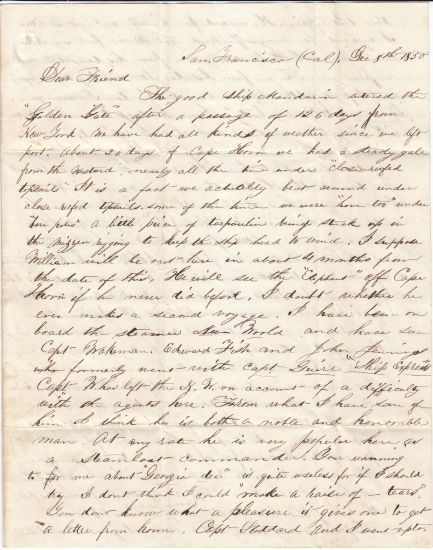 San Francisco (Cal). Dec 8th 1850
Dear Friend
The good ship Mandarin entered the
"Golden Gate" after a passage of 126 days from
New York. We have had all kinds of weather since we left
port. About 20 days off Cape Horn we had a steady gale
from the westward: nearly all the time under "close reefed
topsails" It is a fact we actually beat around under
close reefed topsails. some of the time we were hove too under
"bare poles" a little piece of tarpaulin being stuck up in
the mizzen rigging to keep the ship head to wind. I suppose
William will be out here in about 4 months from
the date of this. He will see the "Elephant" off Cape
Horn if he never did before. I doubt whether he
ever makes a second voyage. I have been on
board the steamer New World and have seen
Capt Wakeman. Edward Fish and John Jennings
who formerly was with Capt Ship Express
Capt W has left the N.W. on account of a difficulty
with the agents here. From what I have seen of
him I think he is both a noble and honorable
man. At any rate he is very popular here as
a steamboat commander. Your warning
to me about "Georgia dear" is quite useless for if I should
try I dont think I could "make a raise of - tears".
You dont know what a pleasure it gives one to get
a letter from home. Capt Stoddard and I went up